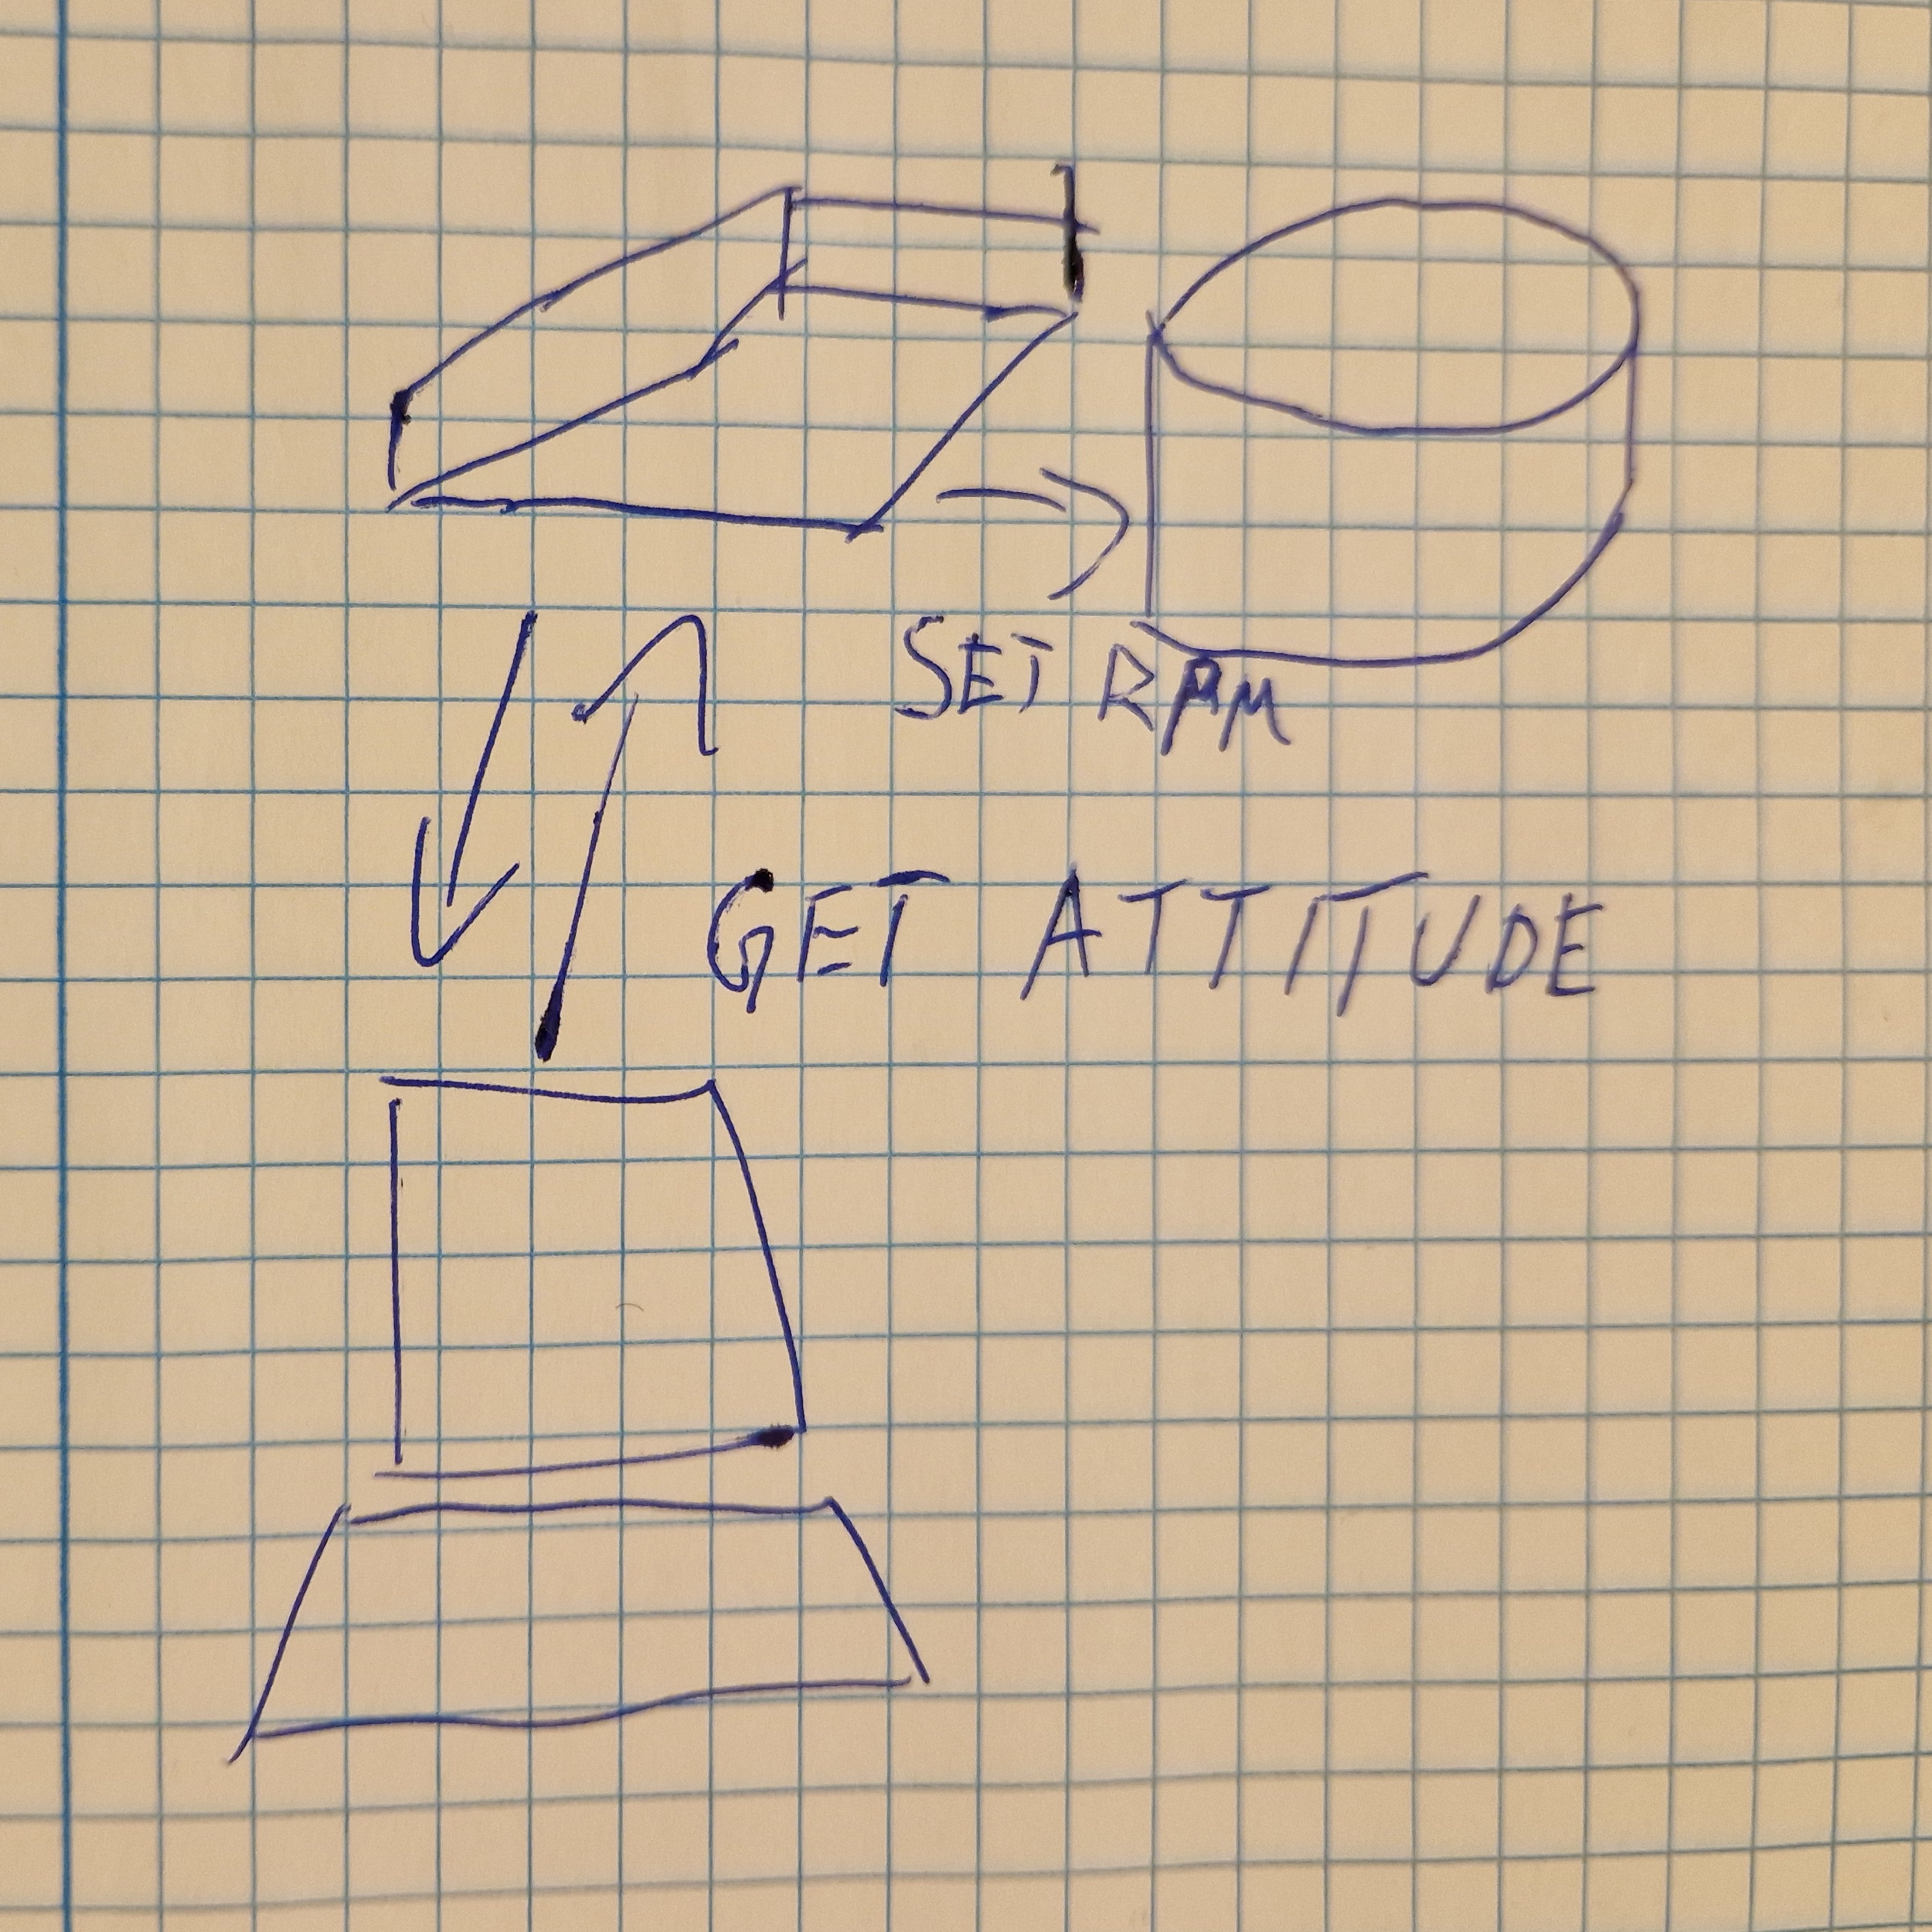 SET RPM
GET ATTITUDE